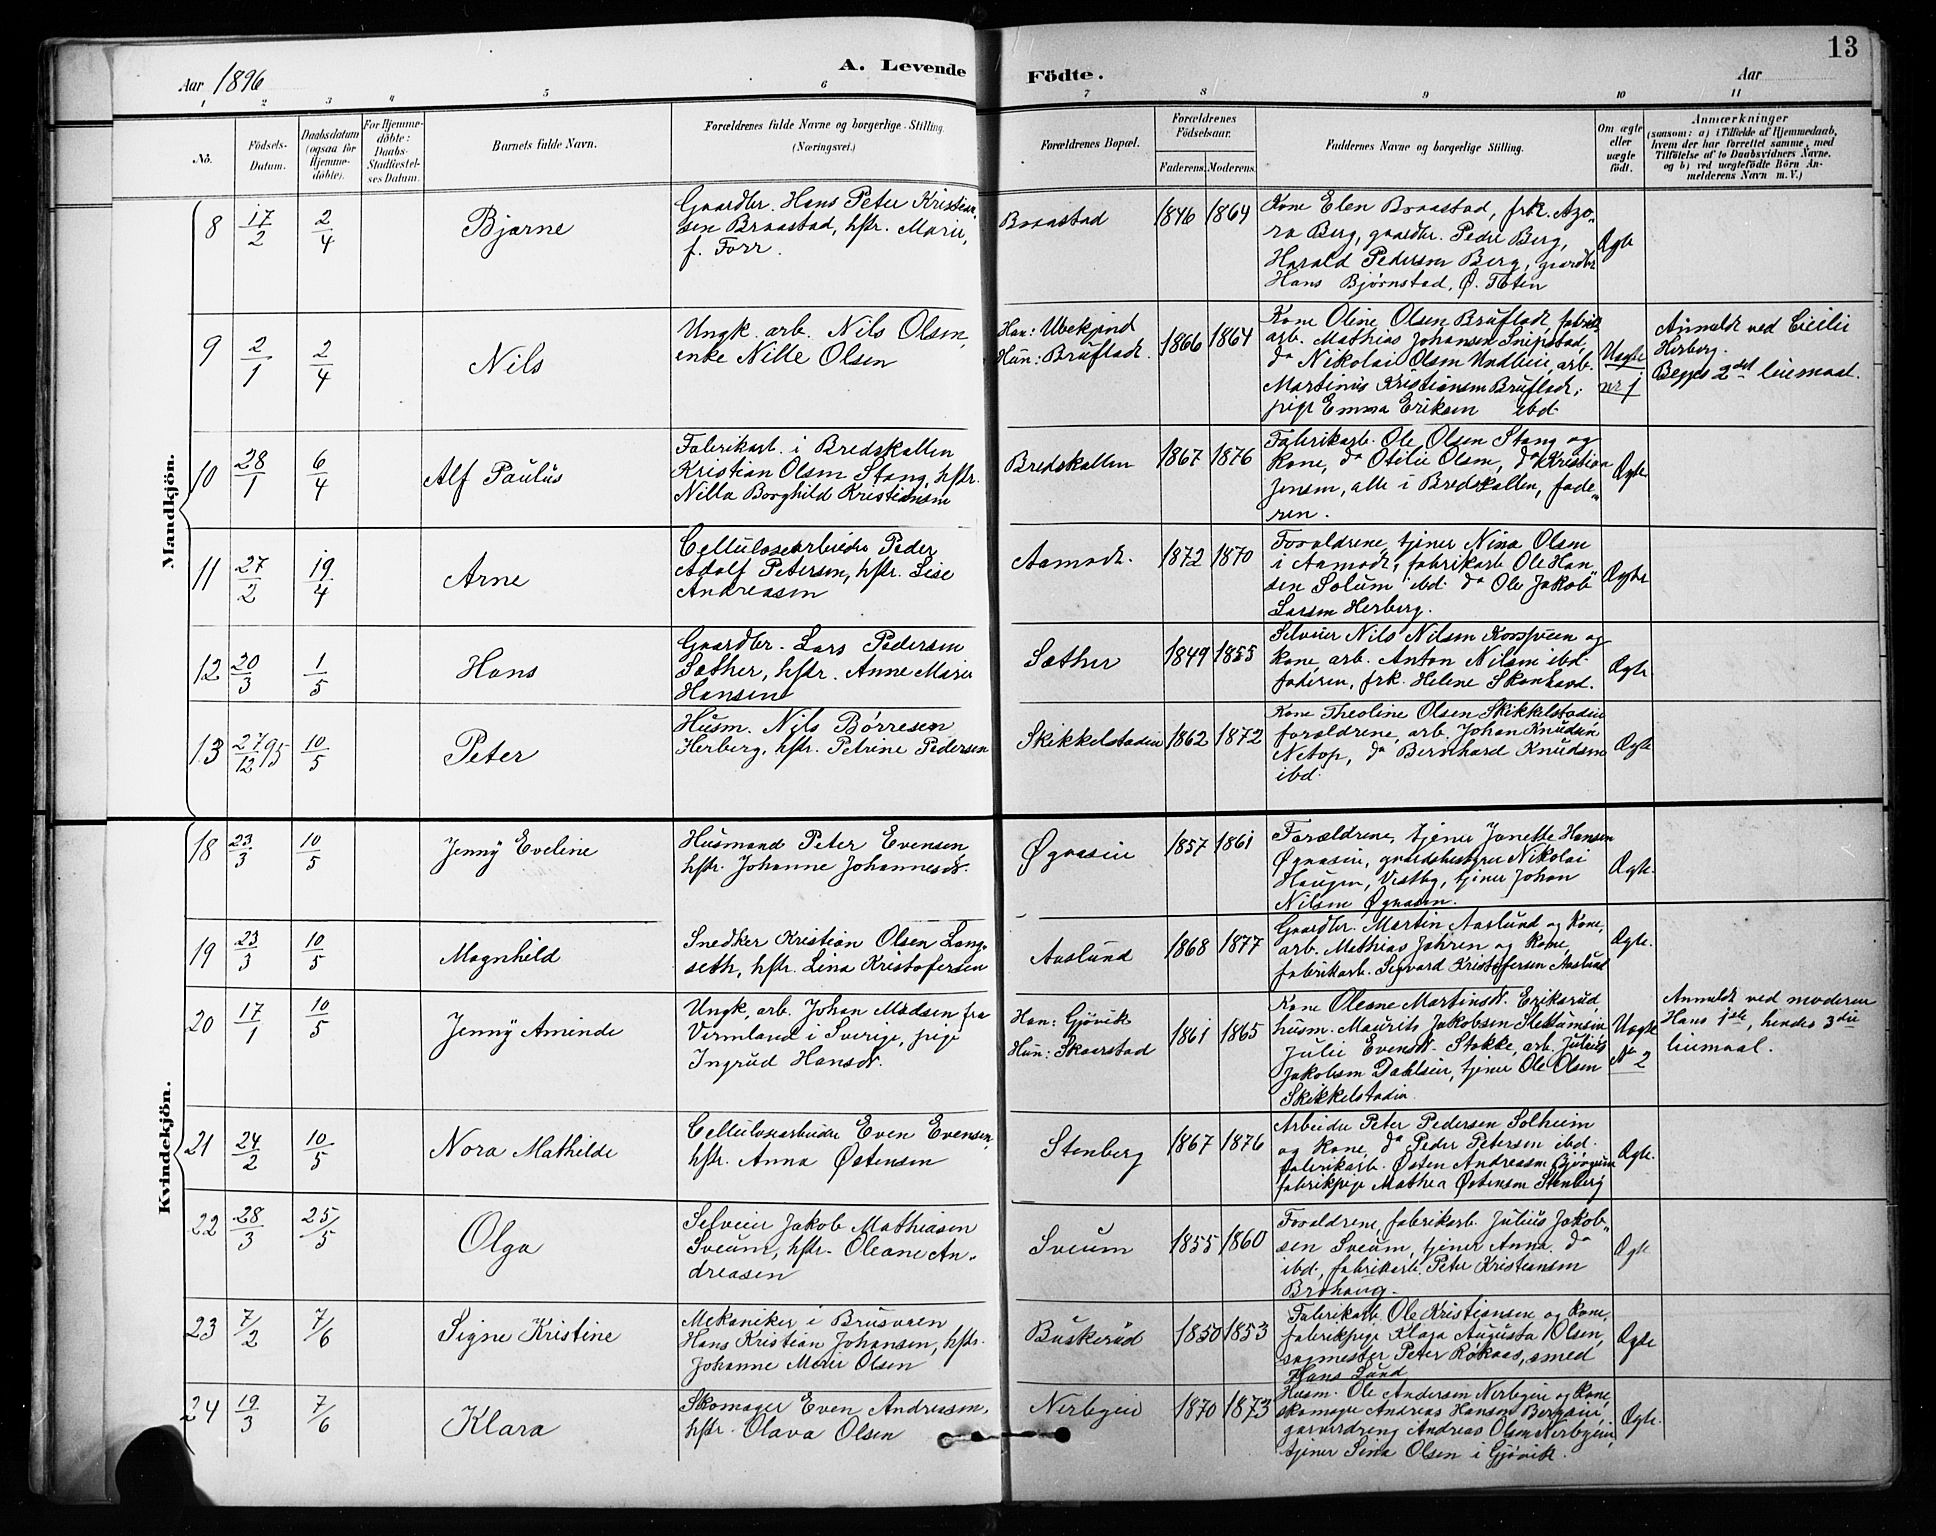 13
Aar 1896
A. Levende Födte.
Aar
1 2 3 4 5 6 7 8 9 10 11
No.
Födsels-Datum.
Daabsdatum (ogsaa for Hjemme-döbte).
For Hjemme-döbte: Daabs-Stadfæstel-ses Datum.
Barnets fulde Navn.
Forældrenes fulde Navne og borgerlige Stilling. (Næringsvei.)
Forældrenes Bopæl.
Forældrenes Födselsaar.
Faderens. Moderens.
Faddernes Navne og borgerlige Stilling.
Om ægte eller uægte födt.
Anmærkninger
(saasom: a) i Tilfælde af Hjemmedaab, hvem der har forrettet samme, med Tilföielse af to Daabsvidners Navne, og b) ved uægtefödte Börn Anmelderens Navn m. V.)
Mandkjön.
8 17/2 2/4 Bjarne
Gaardbr. Hans Peter Kristian-
sen Braastad, hstr. Marie,
f. Forr.
Braastad 1846 1864
Kone Elen Braastad, frk. Azo-
ra Berg, gaardbr. Peder Berg,
Harald Pedersen Berg, gaardbr
Hans Bjørnstad, Ø. Toten
Ægte
9 2/1 2/4 Nils
Ungk. arb. Nils Olsen,
enke Nille Olsen
Han: Ubekjend
Hun: Brufladt.
1866 1864
Kone Oline Olsen Brufladt, fabrik
arb. Mathias Johansen Snipstad,
do Nikolai Olsen Undlien, arb.
Martinus Kristiansen Brufladt,
pige Emma Eriksen ibd.
Uægte
nr 1
Anmeldt ved Cicilie
Herberg.
Begges 2det leiemaal.
10 28/1 6/4 Alf Paulus
Fabrikarb. i Bredskallen
Kristian Olsen Stang, hstr.
Nilla Borghild Kristiansen
Bredskallen 1867 1876
Fabrikarb. Ole Olsen Stang og
kone, do Otilie Olsen, do Kristian
Jensen, alle i Bredskallen, fade-
ren.
Ægte
11 27/2 19/4 Arne
Cellulosearbeider Peder
Adolf Petersen, hstr. Lise
Andreasen
Aamodt. 1872 1870
Forældrene, tjener Nina Olsen
i Aamodt, fabrikarb Ole Han-
sen Solum ibd. do Ole Jakob
Larsen Herberg.
Ægte
12 20/3 1/5 Hans
Gaardbr. Lars Pedersen
Sæther, hstr. Anne Marie
Hansen
Sæther 1849 1855
Selveier Nils Nilsen Korsveen og
kone, arb. Anton Nilsen ibd.
faderen, frk. Helene Skonhovd.
Ægte.
13 27/12 95 10/5 Peter
Husm. Nils Børresen
Herberg, hstr. Petrine Pedersen
Skikkelstadeie 1862 1872
Kone Theoline Olsen Skikkelstadeie
forældrene, arb. Johan Knudsen
Netop, do Bernhard Knudsen
ibd.
Ægte
Kvindekjön.
18 23/3 10/5 Jenny Eveline
Husmand Peter Evensen
hstr. Johanne Johannesdt.
Øgaaseie 1857 1861
Forældrene, tjener Janette Hansen
Øgaaseie, gaardsbestyrer Nikolai
Haugen, Vestby, tjener Johan
Nilsen Øgaasen.
Ægte.
19 23/3 10/5 Magnhild
Snedker Kristian Olsen Lang-
seth, hstr. Lina Kristofersen
Aaslund 1868 1877
Gaardbr. Martin Aaslund og kone,
arb. Mathias Jahren og kone,
fabrikarb. Sigvard Kristofersen Aaslund
Ægte.
20 17/1 10/5 Jenny Aminde
Ungk, arb. Johan Madsen fra
Vermland i Sverige, pige
Ingrid Hansdt.
Han: Gjøvik
Hun: Skaarstad
1861 1865
Kone Oleane Martinsdt. Eriksrud,
husm. Maurits Jakobsen Slettumseie
Julie Evensdt. Stokke, arb. Julius
Jakobsen Dahlseie, tjener Ole Olsen
Skikkelstadeie.
Uægte
No 2
Anmeldt ved moderen
Hans 1ste, hendes 3die
leiemaal.
21 24/2 10/5 Nora Mathilde
Cellulosearbeider Even Evensen,
hstr. Anna Østensen
Stenberg 1867 1876
Arbeider Peter Pedersen Solheim
og kone, do Peder Petersen ibd.
fabrikarb. Østen Andreasen Bjørgeim
fabrikpige Mathea Østensen Stenberg
Ægte.
22 28/3 25/5 Olga
Selveier Jakob Mathiasen
Sveum, hstr. Oleane An-
dreasen
Sveum 1855 1860
Forældrene, fabrikarb. Julius Jakob-
sen Sveum, tjener Anna do
ibd., fabrikarb. Peter Kristiansen
Brohaug.
Ægte.
23 7/2 7/6 Signe Kristine
Mekaniker i Brusveen
Hans Kristian Johansen, hstr.
Johanne Marie Olsen
Buskerud 1850 1853
Fabrikarb. Ole Kristiansen og kone,
fabrikpige Klara Augusta Olsen,
sagmester Peter Røkaas, smed
Hans Lund
Ægte
24 19/3 7/6 Klara
Skomager Even Andreasen,
hstr. Olava Olsen
Nerbyeie 1870 1873
Husm. Ole Andersen Nerbyeie og kone
skomager Andreas Hansen Bergseie,
garverdreng Andreas Olsen Nerbyeie,
tjener Sina Olsen i Gjøvik.
Ægte.